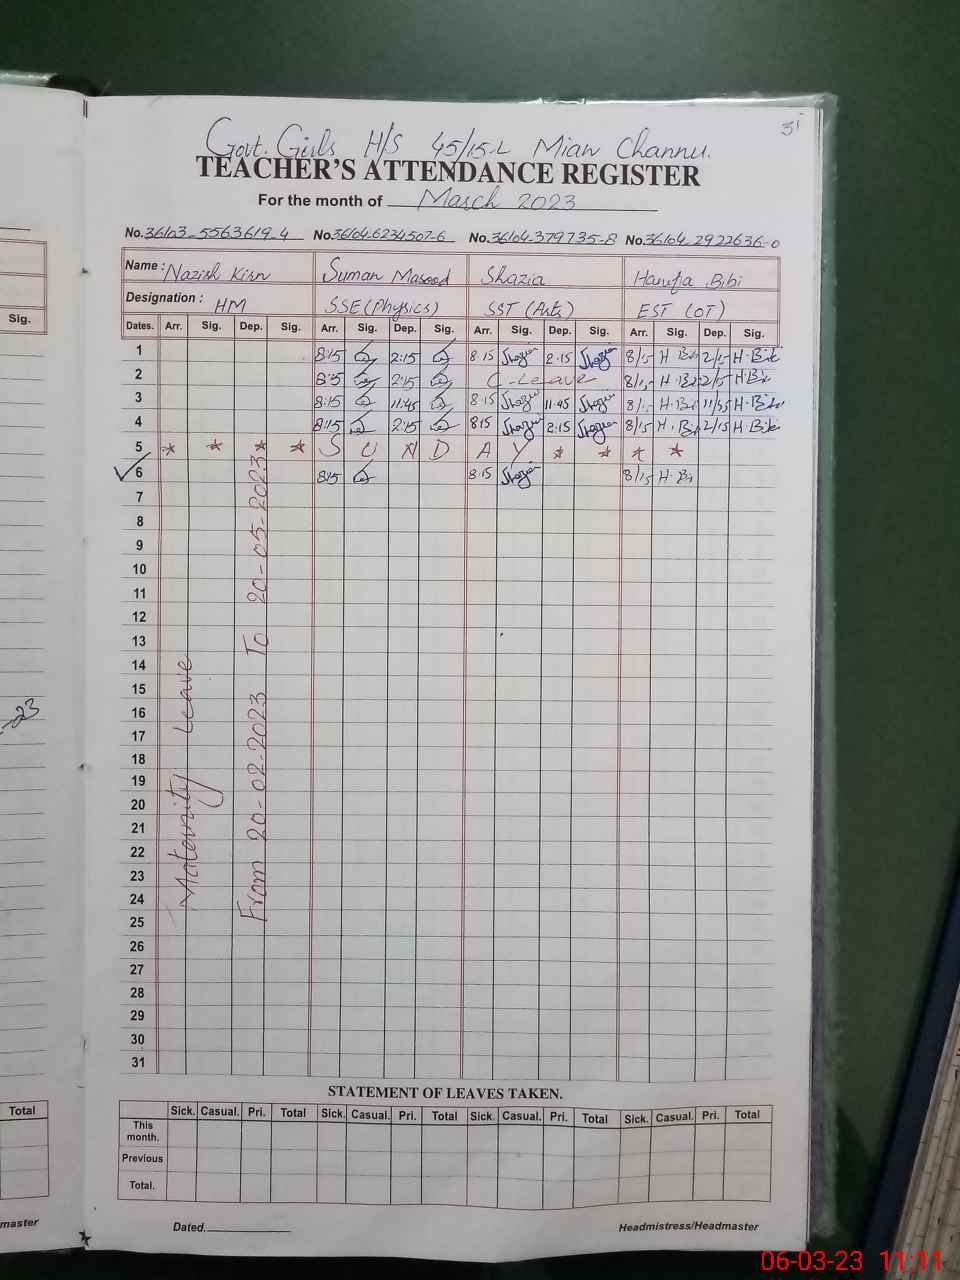 31
Govt. Girls H/S 45/15-L Mian Channu.
TEACHER'S ATTENDANCE REGISTER
For the month of March 2023
No. 36103-5563619-4 No. 36104-6234507-6 No. 36104-379735-8 No. 36104-2922636-0
Name : Nazish Kirn Suman Masood Shazia Hanifa Bibi
Designation : HM SSE (Physics) SST (Arts) EST (OT)
Dates. Arr. Sig. Dep. Sig. Arr. Sig. Dep. Sig. Arr. Sig. Dep. Sig. Arr. Sig. Dep. Sig.
1 8:15 2:15 8:15 Shazia 2:15 Shazia 8/15 H.Bibi 2/15 H.Bibi
2 8:15 2:15 C-Leave 8/15 H.Bibi 2/15 H.Bibi
3 8:15 11:45 8:15 Shazia 11:45 Shazia 8/15 H.Bibi 11/45 H.Bibi
4 8:15 2:15 8:15 Shazia 2:15 Shazia 8/15 H.Bibi 2/15 H.Bibi
5 * * * * S U N D A Y * * * *
✓6 8:15 8:15 Shazia 8/15 H.Bi
7
8
9
10
11
12
13
14
15
16
17
18
19
20
21
22
23
24
25
26
27
28
29
30
31
Maternity Leave
From 20-02-2023 To 20-05-2023
STATEMENT OF LEAVES TAKEN.
Sick. Casual. Pri. Total Sick. Casual. Pri. Total Sick. Casual. Pri. Total Sick. Casual. Pri. Total
This month.
Previous
Total.
Dated. Headmistress/Headmaster
Sig.
-23
Total
master
06-03-23 11:11